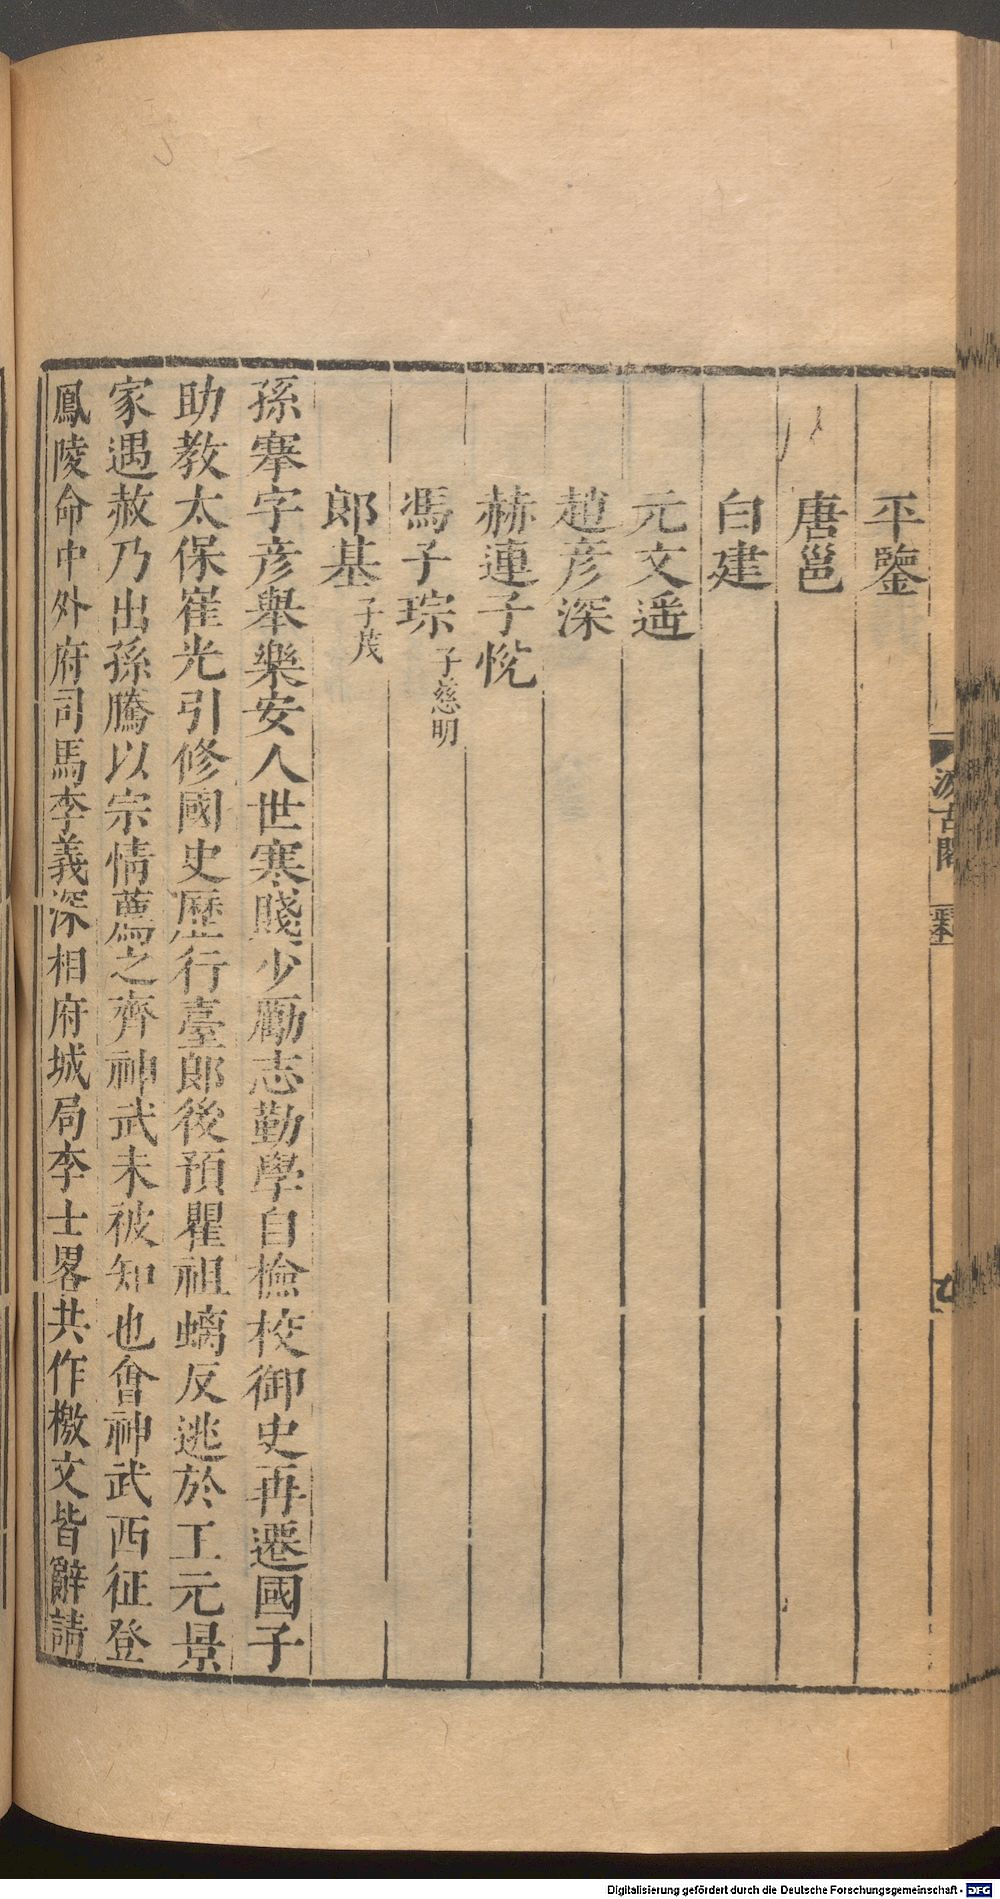 平鑒
唐邕
白建
元文遥
趙彥深
赫連子悅
馮子琮 子慈明
郎基 子茂
孫搴字彥舉樂安人世寒賤少勵志勤學自檢校御史再遷國子
助教太保崔光引修國史歷行臺郎後預瞿祖螭反逃於工元景
家遇赦乃出孫騰以宗情薦之齊神武未被知也會神武西征登
鳳陵命中外府司馬李義深相府城局李士畧共作檄文皆辭請
汲古閣
Digitalisierung gefördert durch die Deutsche Forschungsgemeinschaft - DFG